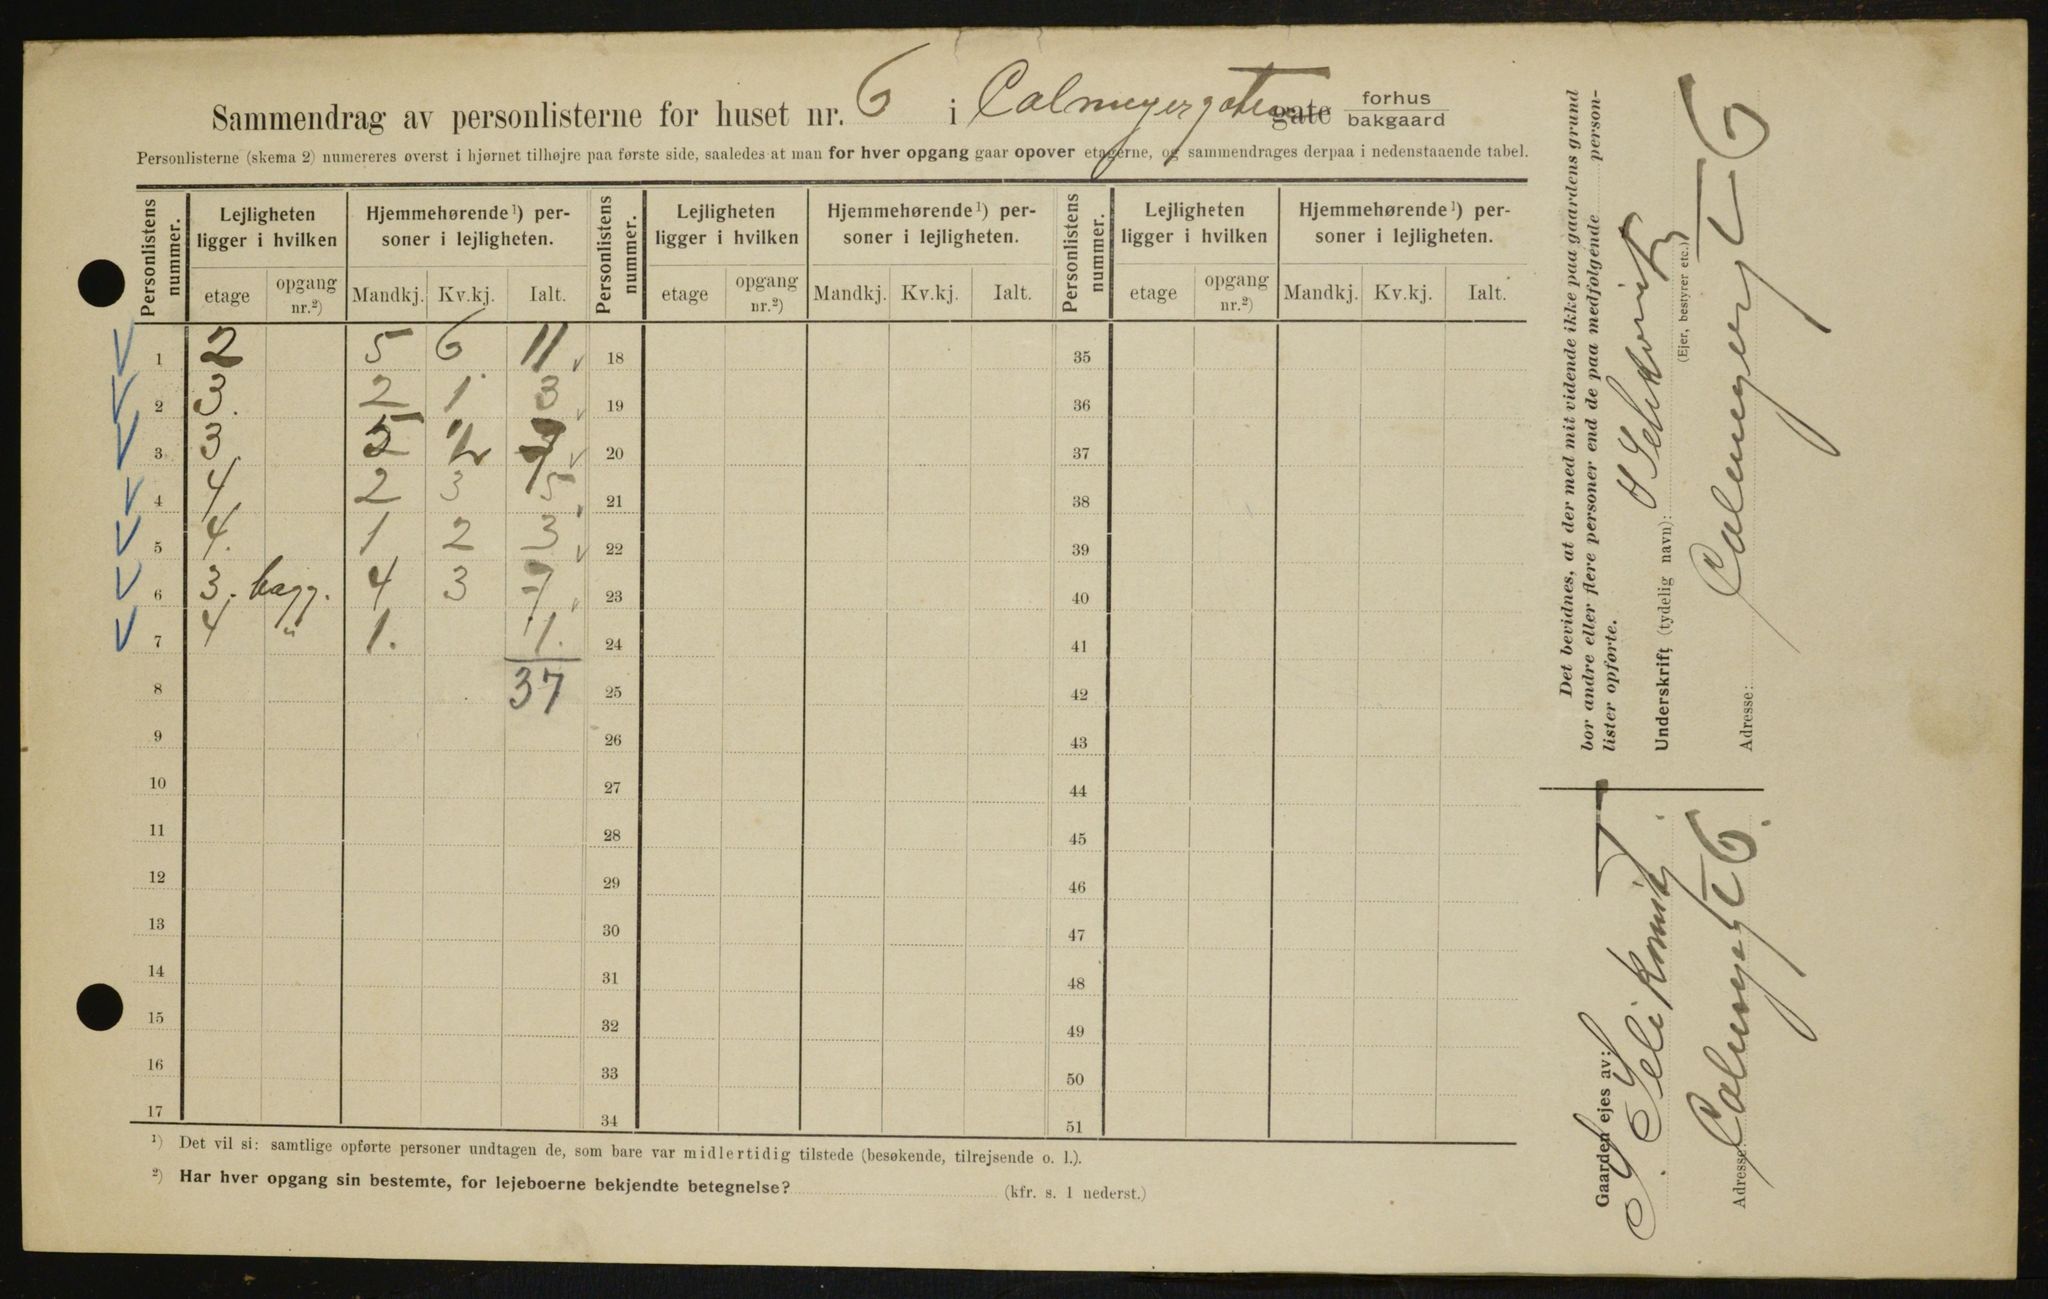 Sammendrag av personlisterne for huset nr. 6 i Calmeyergaten gate forhus bakgaard
Personlisterne (skema 2) numereres øverst i hjørnet tilhøjre paa første side, saaledes at man for hver opgang gaar opover etagerne, og sammendrages derpaa i nedenstaaende tabel.
Personlistens nummer. Lejligheten ligger i hvilken Hjemmehørende¹) personer i lejligheten. Personlistens nummer. Lejligheten ligger i hvilken Hjemmehørende¹) personer i lejligheten. Personlistens nummer. Lejligheten ligger i hvilken Hjemmehørende¹) personer i lejligheten.
etage opgang nr.²) Mandkj. Kv.kj. Ialt. etage opgang nr.²) Mandkj. Kv.kj. Ialt. etage opgang nr.²) Mandkj. Kv.kj. Ialt.
1 2 5 6 11 18 35
2 3. 2 1 3 19 36
3 3. 5 2 7 20 37
4 4 2 3 5 21 38
5 4. 1 2 3 22 39
6 3. bagg. 4 3 7 23 40
7 4 " 1. 1. 24 41
8 37 25 42
9 26 43
10 27 44
11 28 45
12 29 46
13 30 47
14 31 48
15 32 49
16 33 50
17 34 51
¹) Det vil si: samtlige opførte personer undtagen de, som bare var midlertidig tilstede (besøkende, tilrejsende o. l.).
²) Har hver opgang sin bestemte, for lejeboerne bekjendte betegnelse? (kfr. s. 1 nederst.)
Det bevidnes, at der med mit vidende ikke paa gaardens grund
bor andre eller flere personer end de paa medfølgende person-
lister opførte.
Underskrift (tydelig navn):
(Ejer, bestyrer etc.)
Adresse: Calmeyergt 6
Gaarden ejes av:
Adresse: Calmeyergt 6.